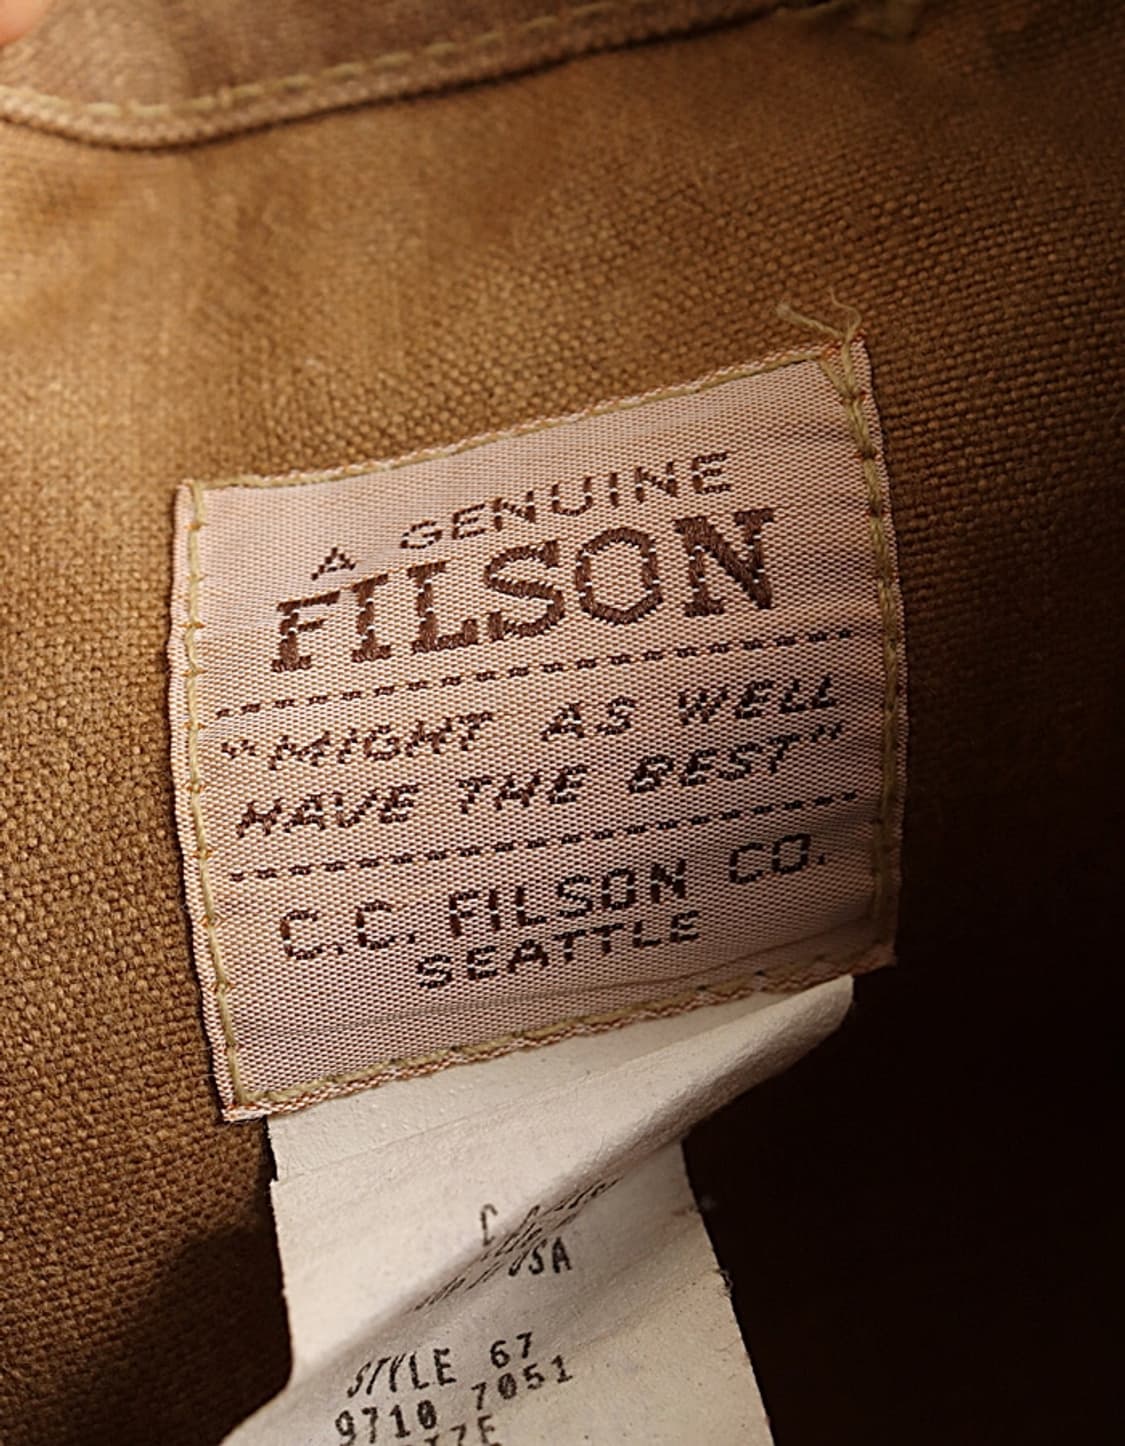 A GENUINE
FILSON
"MIGHT AS WELL
HAVE THE BEST"
C.C. FILSON CO.
SEATTLE
STYLE 67
9710 7051